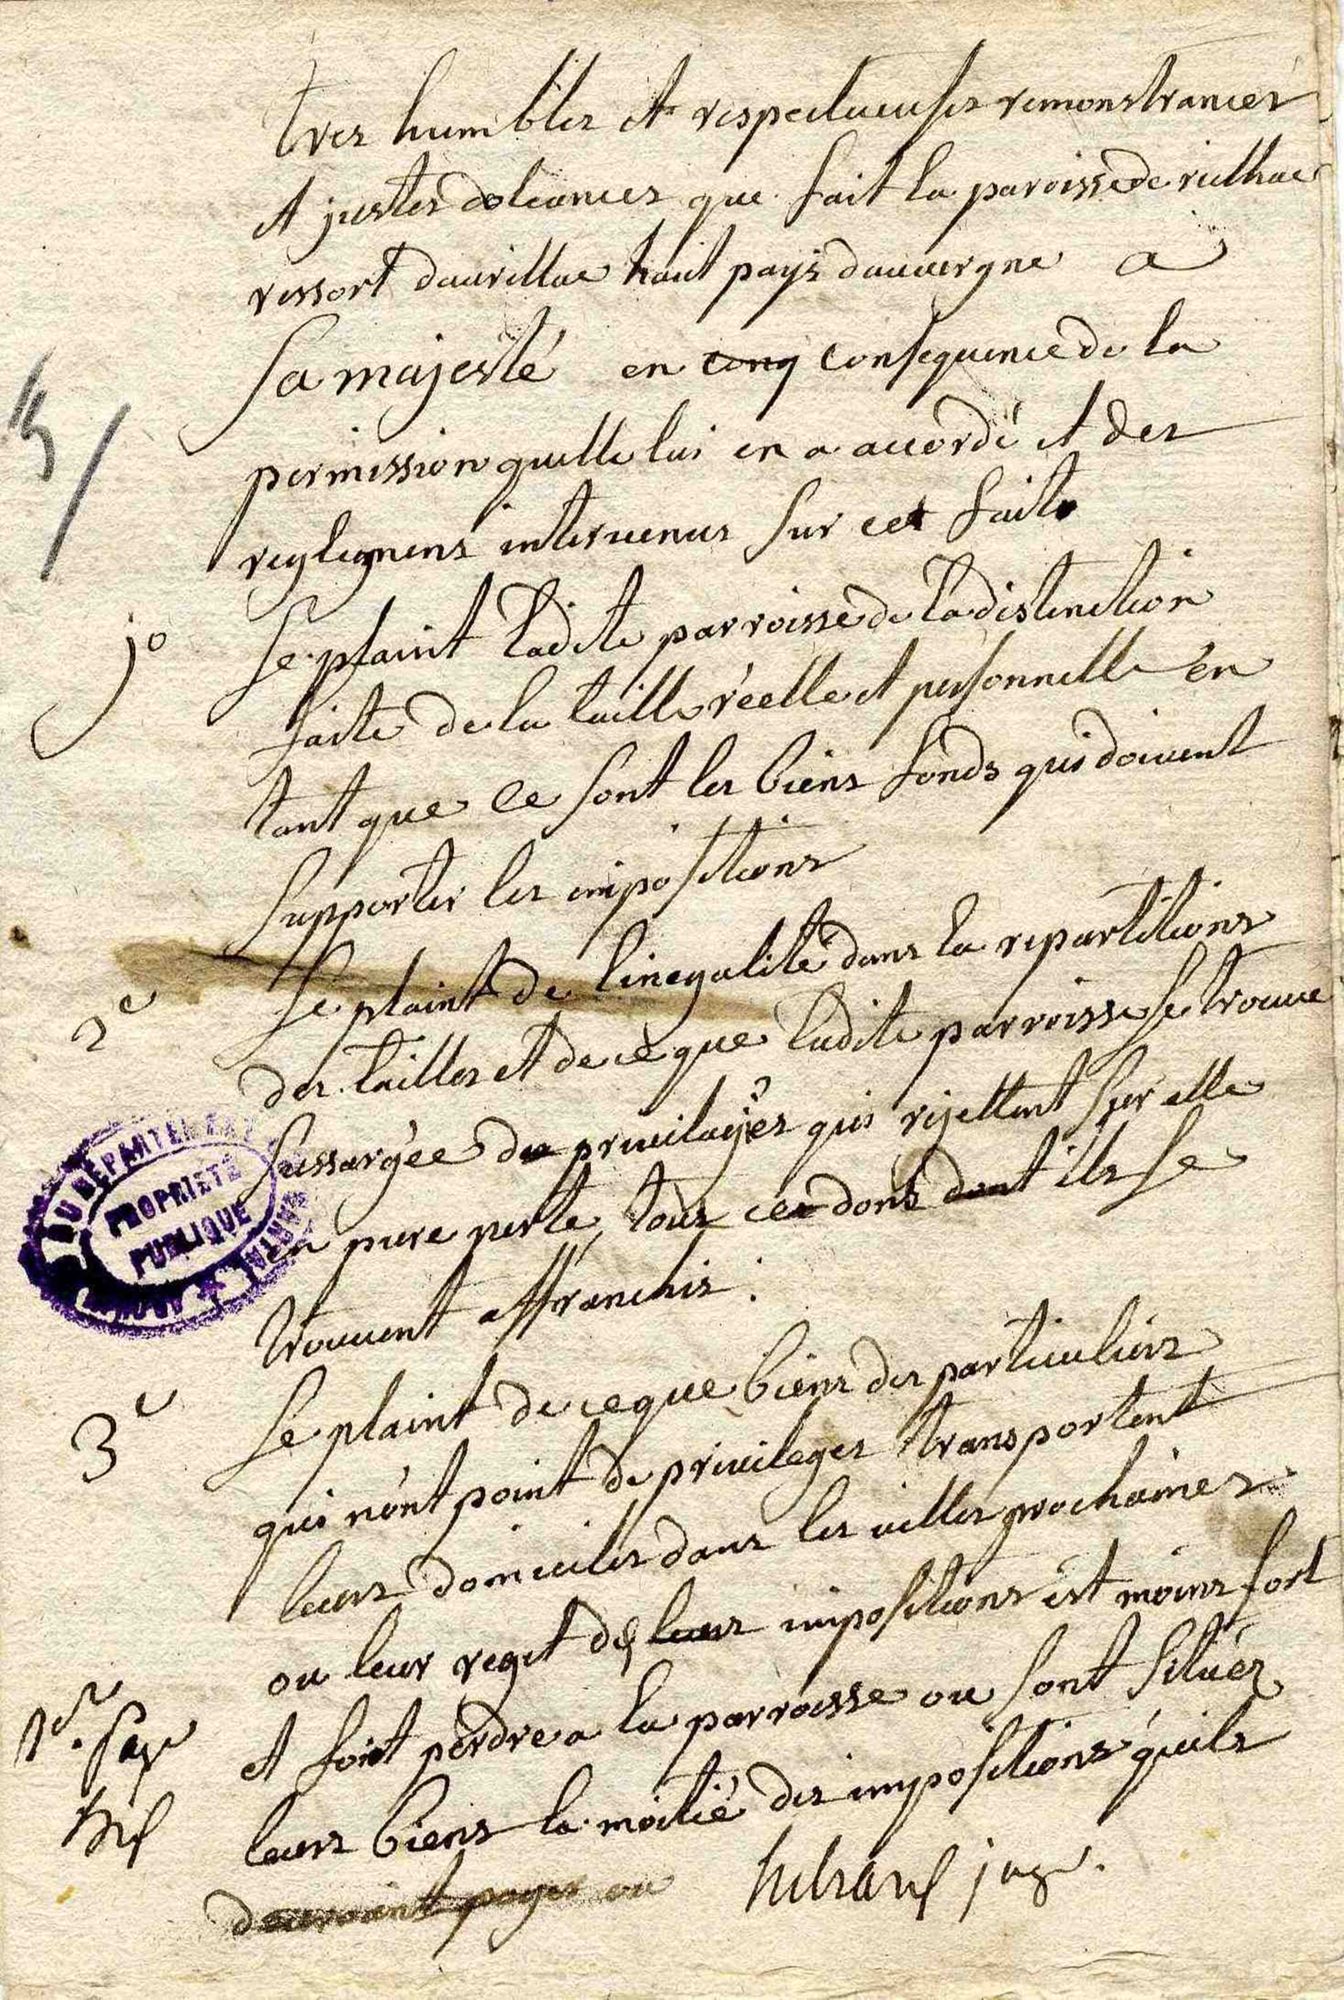 tres humbles et respectueuses remonstrances
et justes doleances que fait la paroisse de rilhac
ressort daurillac haut pays dauvergne a
sa majesté en conq consequence de la
permission quelle lui en a accordé et des
reglemens intervenus sur cet fait
1º se plaint ladite parroisse de la distinction
faite de la taille réelle et personnelle en
tant que ce sont les biens fonds qui doivent
supporter les impositions
2e se plaint de linegalité dans la repartitions
des tailles et de ce que ladite parroisse se trouve
sussargée de privilayés qui rejettent sur elle
en pure perte tous ces dons dont ils se
trouvent affranchis.
3e se plaint de ce que biens des particuliers
qui nont point de privileges transportent
leurs domiciles dans les villes prochaines
ou leur reget de leurs impositions est moins fort
et font perdre a la parroisse ou sont situés
leurs biens la moitié des impositions quils
devroient payer ou
1re page
hebrard juge.
DU DÉPARTEMENT
PROPRIÉTÉ
PUBLIQUE
CANTAL